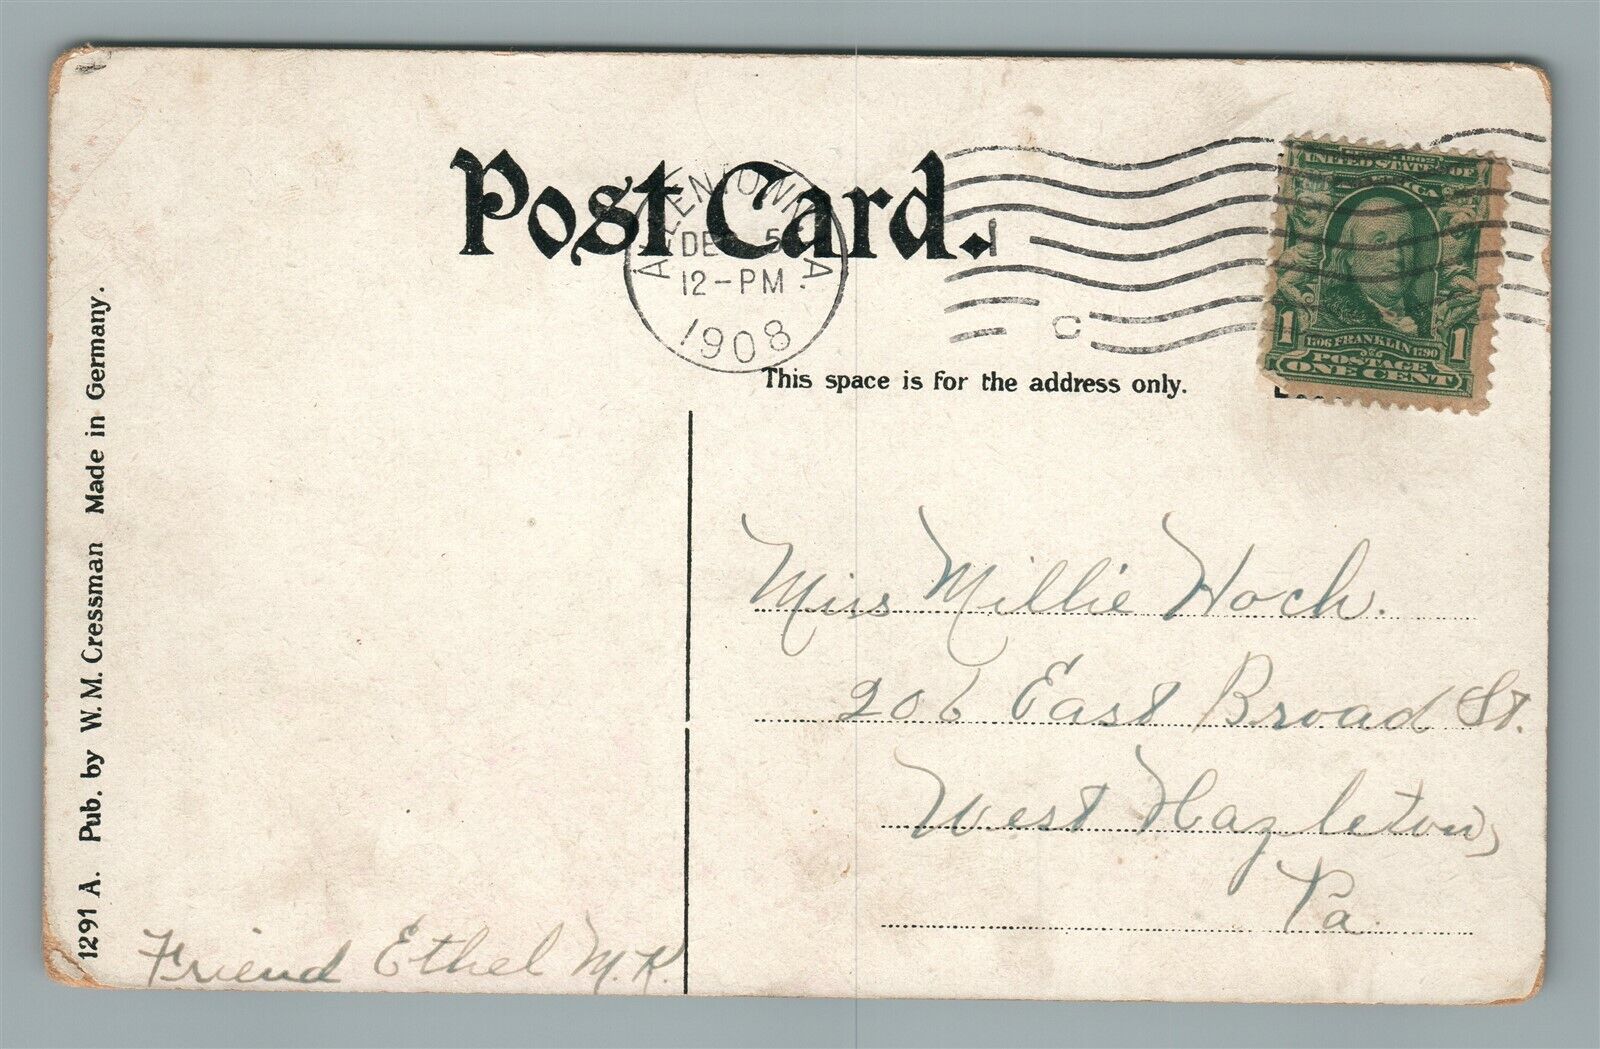 Post Card.
ALLENTOWN, PA.
DEC 5
12-PM
1908
1
C
1902
UNITED STATES OF
AMERICA
1 1
1706 FRANKLIN 1790
POSTAGE
ONE CENT
This space is for the address only.
Miss Millie Hoch.
206 East Broad St.
West Hazleton,
Pa.
Friend Ethel M. K.
1291 A. Pub. by W. M. Cressman Made in Germany.